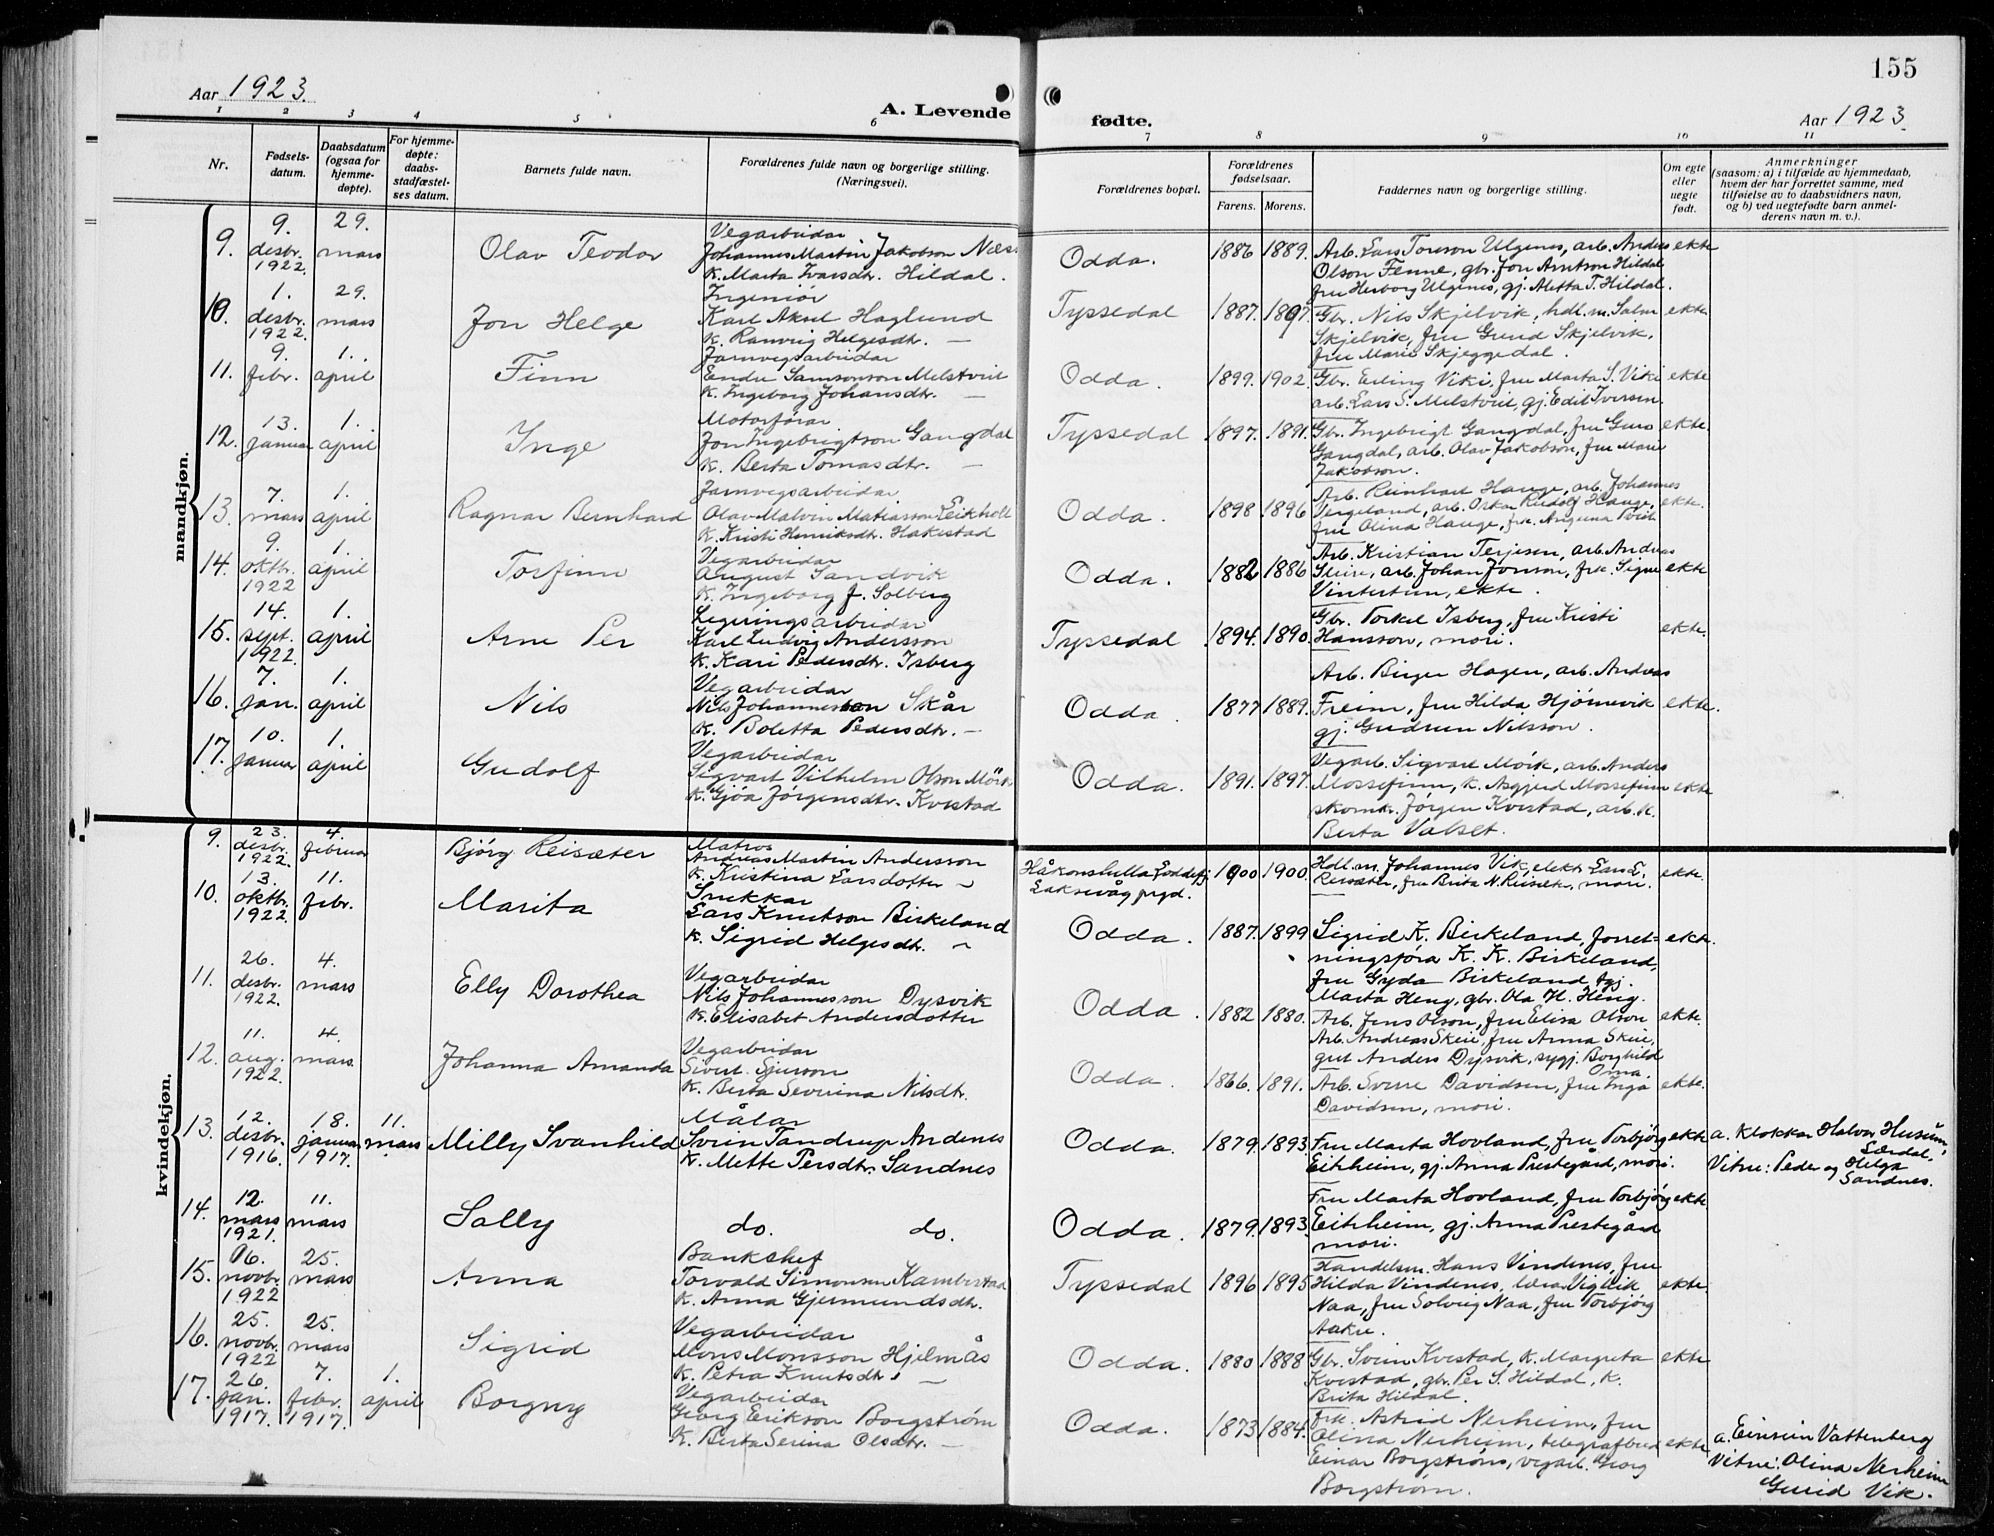 155
Aar 1923.
A. Levende
fødte.
Aar 1923.
1 2 3 4 5 6 7 8 9 10 11
Nr.
Fødsels-
datum.
Daabsdatum
(ogsaa for
hjemme-
døpte).
For hjemme-
døpte:
daabs-
stadfæstel-
ses datum.
Barnets fulde navn.
Forældrenes fulde navn og borgerlige stilling.
(Næringsvei).
Forældrenes bopæl.
Forældrenes
fødselsaar.
Farens. Morens.
Faddernes navn og borgerlige stilling.
Om egte
eller
uegte
født.
Anmerkninger
(saasom: a) i tilfælde av hjemmedaab,
hvem der har forrettet samme, med
tilføielse av to daabsvidners navn,
og b) ved uegtefødte barn anmel-
derens navn m. v.).
mandkjøn.
9. 9. desbr. 1922. 29. mars Olav Teodor
Vegarbeidar
Johannes Martin Jakobson Næs
k. Marta Ivarsdtr. Hildal.
Odda. 1886 1889.
Arb. Lars Toreson Ulgenes, arb. Anders
Olson Fenne, gbr. Jon Arntson Hildal
fru Herborg Ulgenes, gj. Aletta T. Hildal.
ekte
10. 1. desbr. 1922. 29. mars Jon Helge
Ingeniør
Karl Aksel Haglund
k. Ranveig Helgesdtr. —
Tyssedal 1887. 1897.
Gbr. Nils Skjelvik, hdl.m. Salm
Skjelvik, fru Gurid Skjelvik,
fru Marie Skjeggedal.
ekte
11. 9. febr. 1. april Finn
Jarnvegsarbeidar
Endre Samsonson Melstveit
k. Ingeborg Johansdtr. —
Odda. 1899. 1902.
Gbr. Erling Viki, fru Marta S. Viki
arb. Lars S. Melstveit, gj. Edit Iversen.
ekte
12. 13. januar 1. april Inge
Motorførar
Jon Ingebrigtson Gangdal
k. Berta Tomasdtr. —
Tyssedal 1897. 1891.
Gbr. Ingebrigt Gangdal, fru Guro
Gangdal, arb. Olav Jakobson, fru Marie
Jakobson.
ekte.
13. 7. mars 1. april Ragnar Bernhard
Jarnvegsarbeidar
Olav Malvin Matiasson Leikholl
k. Kristi Henriksdtr. Hakestad
Odda. 1898 1896
Arb. Reinhart Hauge, arb. Johannes
Vergeland, arb. Oskar Rudolf Hauge,
fru Olina Hauge, frk.
ekte.
14. 9. oktbr. 1922 1. april Torfinn
Vegarbeidar
August Sandvik
k. Ingeborg J. Solberg
Odda. 1882 1886
Arb. Kristian Terjesen, arb. Andreas
Skeie, arb. Johan Jonson, frk. Signe
Vintertun, ekte.
ekte
15. 14. sept. 1922. 1. april Arne Per
Legeringsarbeidar
Karl Ludvig Andersson
k. Kari Pedersdtr. Isberg
Tyssedal 1894. 1890.
Gbr. Torkel Isberg, fru Kristi
Hansson, mori.
ekte.
16. 7. jan. 1. april Nils
Vegarbeidar
Nils Johannesson Skår
k. Boletta Pedersdtr. —
Odda. 1877 1889.
Arb. Birger Hagen, arb. Andreas
Freim, fru Hilda Hjørnevik
gj. Gudrun Nilsson.
ekte.
17. 10. januar 1. april Gudolf
Vegarbeidar
Sigvart Vilhelm Olson Mörk
k. Gjøa Jørgensdtr. Kvestad
Odda. 1891. 1897.
Vegarb. Sigvard Mörk, arb. Anders
Mossefinn, k. Asgjerd Mossefinn
skomk. Jörgen Kvestad, arb. k.
Berta Valset.
ekte
kvindekjøn.
9. 23. desbr. 1922. 4. februar Bjørg Reisæter
Matros
Andreas Martin Andersson
k. Kristina Larsdotter —
Håkonshella Loddefj.
Laksevåg prgd.
1900 1900.
Hdl.m. Johannes Vik, elekt. Lars L.
Reisæter, fru Brita N. Reisæt., mori.
ekte.
10. 13. oktbr. 1922. 11. febr. Marita
Snekkar
Lars Knutson Birkeland
k. Sigrid Helgesdtr. —
Odda. 1887. 1899
Sigrid K. Birkeland, forret-
ningsføra K. K. Birkeland,
fru Gyda Birkeland, gj.
Marta Heng, gbr. Ola H. Heng.
ekte.
11. 26. desbr. 1922. 4. mars Elly Dorothea
Vegarbeidar
Nils Johannesson Dysvik
k. Elisabet Andersdotter
Odda. 1882 1880.
Arb. Jens Olson, fru Elisa Olson
Arb. Andreas Skeie, fru Anna Skeie,
gut Anders Dysvik, sygj. Borghild
Oma.
ekte.
12. 11. aug. 1922. 4. mars. Johanna Amanda
Vegarbeidar
Sivert Sjurson
k. Berta Severina Nilsdtr.
Odda. 1866. 1891.
Arb. Sverre Davidsen, fru Inga
Davidsen, mori.
ekte.
13. 12. desbr. 1916. 18. januar 1917. 11. mars Milly Svanhild
Målar
Svein Tandrup Andenes
k. Mette Persdtr. Sandnes
Odda. 1879. 1893.
Fru Marta Hovland, fru Torbjørg
Eitrheim, gj. Anna Prestegård, mori.
ekte
a. Klokkar Halvar Husum,
Lærdal.
Vitne: Peder og Helga
Sandnes.
14. 12. mars 1921. 11. mars Solly
do. do.
Odda. 1879. 1893.
Fru Marta Hovland, fru Torbjørg
Eitrheim, gj. Anna Prestegård
mori.
ekte
15. 06. novbr. 1922 25. mars Anna
Bankshef
Torvald Simonsen Kamberstad
k. Anna Gjermundsdtr.
Tyssedal 1896 1895
Handelsm. Hans Vindenes, fru
Hilda Vindenes, lærar Vigleik
Naa, fru Solveig Naa, fru Torbjørg
Aakre.
ekte
16. 25. novbr. 1922 25. mars Sigrid
Vegarbeidar
Mons Monsson Hjelmås
k. Petra Knutsdtr. —
Odda. 1880 1888
Gbr. Svein Kvestad, k. Margreta
Kvestad, gbr. Per S. Hildal, k.
Brita Hildal.
ekte
17. 26. jan. 1917. 7. febr. 1917. 1. april Borgny
Vegarbeidar
Georg Erikson Borgstrøm
k. Berta Serina Olsdtr. —
Odda. 1873 1884.
frk. Astrid Nerheim, fru
Olina Nerheim, telegrafbud
Einar Borgstrøm, vegarb. Georg
Borgstrøm.
ekte
a. Vattenberg
Vitne: Olina Nerheim
Gurid Vik.